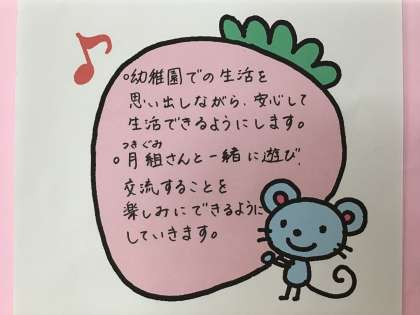 ○幼稚園での生活を
思い出しながら、安心して
生活できるようにします。
つきぐみ
○月組さんと一緒に遊び、
交流することを
楽しみにできるように
していきます。